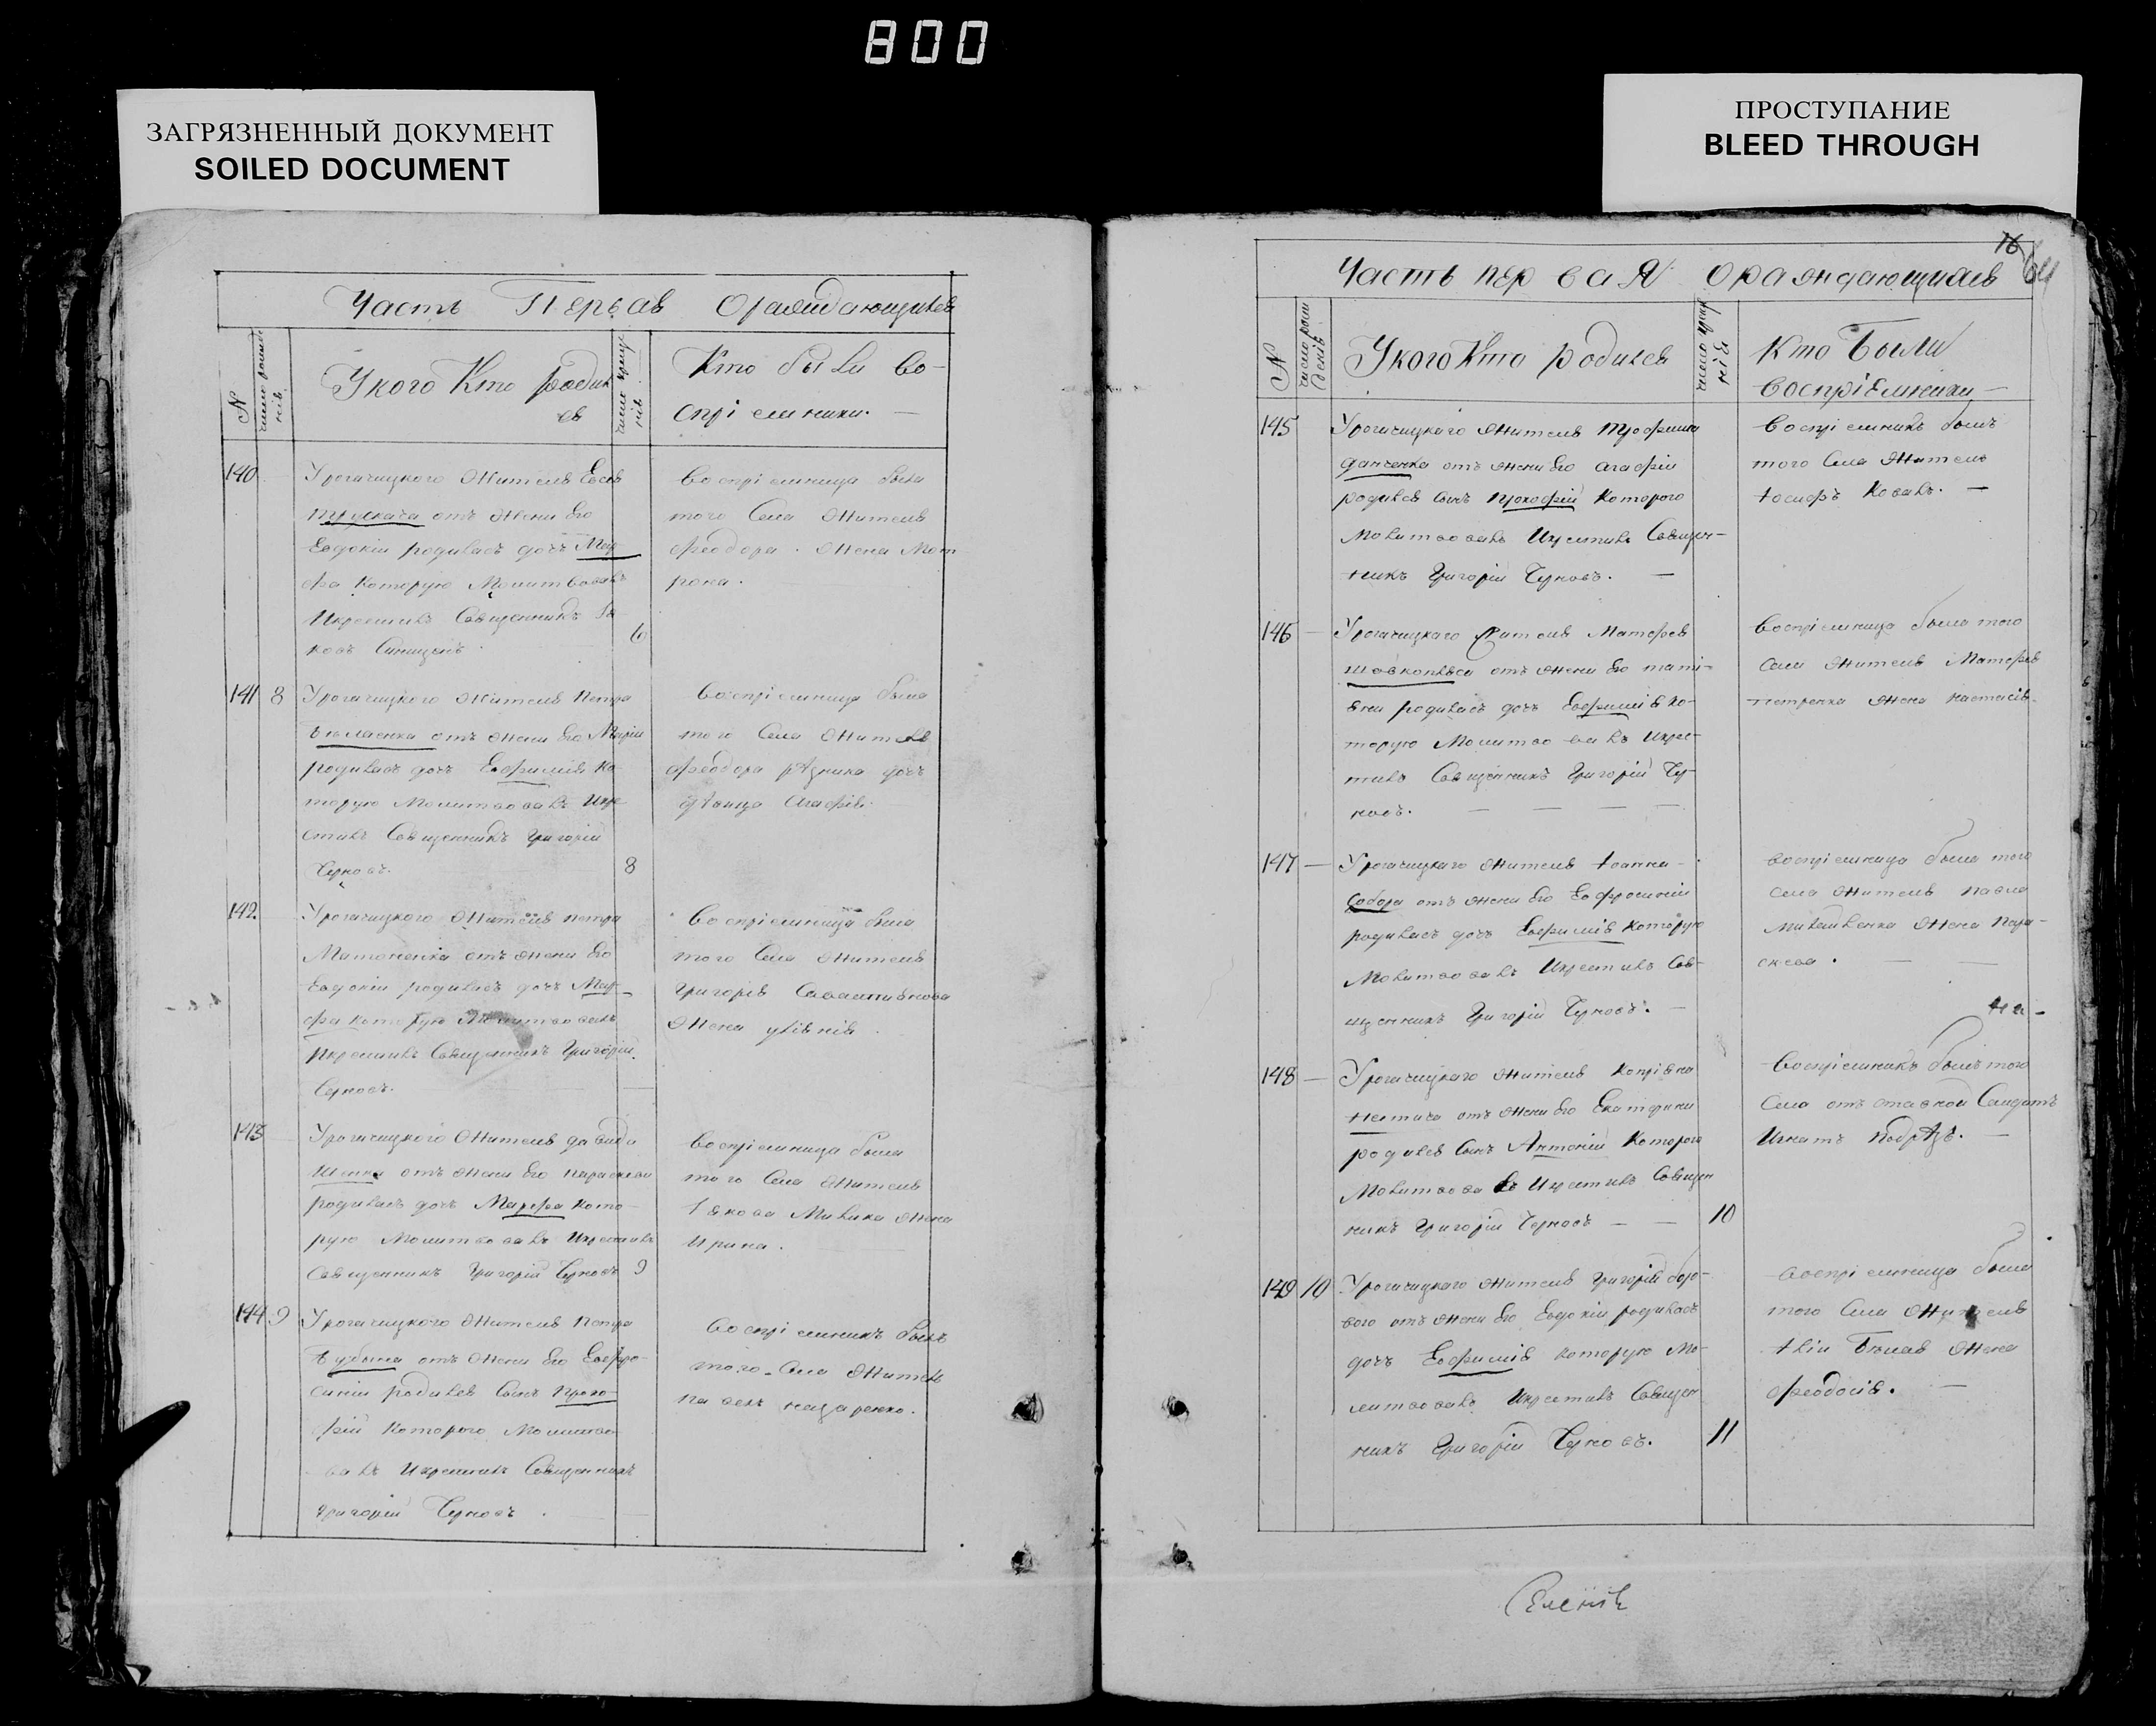 800
ЗАГРЯЗНЕННЫЙ ДОКУМЕНТ
SOILED DOCUMENT
ПРОСТУПАНИЕ
BLEED THROUGH
Часть Первая Ораждающихся
N
У кого Кто родил
ся
Кто были во-
спріемники. —
140
Урогачицкого Жителя Евсея
Трускача отъ Жени Его
Евдокіи родилась дочь Мар
фа которую Молитвовалъ
Икрестилъ Священникъ Ія
ковъ Синицынъ
6
Воспріемница была
того Села Жителя
Феодора Жена Мот
рона.
141 8
Урогачицкого Жителя Петра
отъ жени Его Маріи
родилась дочь Евфимія ко
торую Молитвовалъ Икре
стилъ Священникъ Григорій
Черновъ.
8
Воспріемница была
того Села Жителя
Феодора рѣзника дочь
дѣвица Агафія.
142
Урогачицкого Жителя Петра
Матоненка отъ жени Его
Евдокіи родилась дочь Мар-
фа которую Молитвовалъ
Икрестилъ Священникъ Григорій
Черновъ.
Воспріемница была
того Села Жителя
Григорія
Жена уліянія
143
Урогачицкого Жителя давида
Шенка отъ жени Его параскеви
родилась дочь Марфа кото-
рую Молитвовалъ Икрестилъ
Священникъ Григорій Черновъ
9
Воспріемница была
того Села Жителя
Іякова Милика Жена
Ирина.
144 9
Урогачицкого Жителя Петра
отъ жени Его Евфро-
синіи родился Сынъ Проко-
фій Которого Молитво
валъ Икрестилъ Священникъ
Григорій Черновъ
Воспріемникъ былъ
того Села Житель
Павелъ назаренко.
16
Часть первая ораждающихся
N
У кого Кто родился
Кто Были
воспріемники —
145
Урогачицкаго Жителя Трофима
Данченка отъ жени Его Агафіи
родился Сынъ Прокофій Которого
Молитвовалъ Икрестилъ Священ-
никъ Григорій Черновъ. —
Воспріемникъ былъ
того Села Житель
Іосифъ Коваль. —
146
Урогачицкаго Жителя Матфея
Шовкопляса отъ жени Его тати-
яни родилась дочь Евфимія ко-
торую Молитвовалъ Икре-
тилъ Священникъ Григорій Че-
новъ.
Воспріемница была того
Села Жителя Матфея
петренка Жена настасія.
147
Урогачицкаго Жителя Іоанна
Собора отъ жени Его Евфросиніи
родилась дочь Евфимія Которую
Молитвовалъ Икрестилъ Свя-
щенникъ Григорій Черновъ. —
Воспріемница была того
Села Жителя Павла
Жена Пара-
скева.
на-
148
Урогачицкаго Жителя Копріяна
отъ жени Его Екатерини
родился Сынъ Антоній Которого
Молитвовалъ Икрестилъ Священ
никъ Григорій Черновъ
10
Воспріемникъ былъ того
Села отъ ставной Салдатъ
Игнатъ Подрѣзъ. —
149 10
Урогачицкаго Жителя Григорій боро-
вого отъ жени Его Евдокіи родилась
дочь Евфимія которую Мо-
литвовалъ Икрестилъ Священ
никъ Григорій Черновъ.
11
Воспріемница была
того Села Жителя
Іліи Жена
Феодосія.